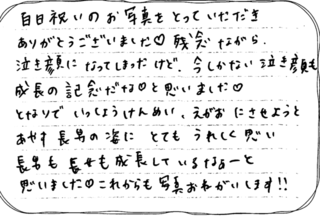 百日祝いのお写真をとっていただき
ありがとうございました♡ 残念ながら、
泣き顔になってしまったけど、今しかない泣き顔も
成長の記念だな♡と思いました♡
となりで いっしょうけんめい、えがおにさせようと
あやす長男の姿に とても うれしく思い
長男も 長女も成長しているなぁーと
思いました♡これからも写真おねがいします!!